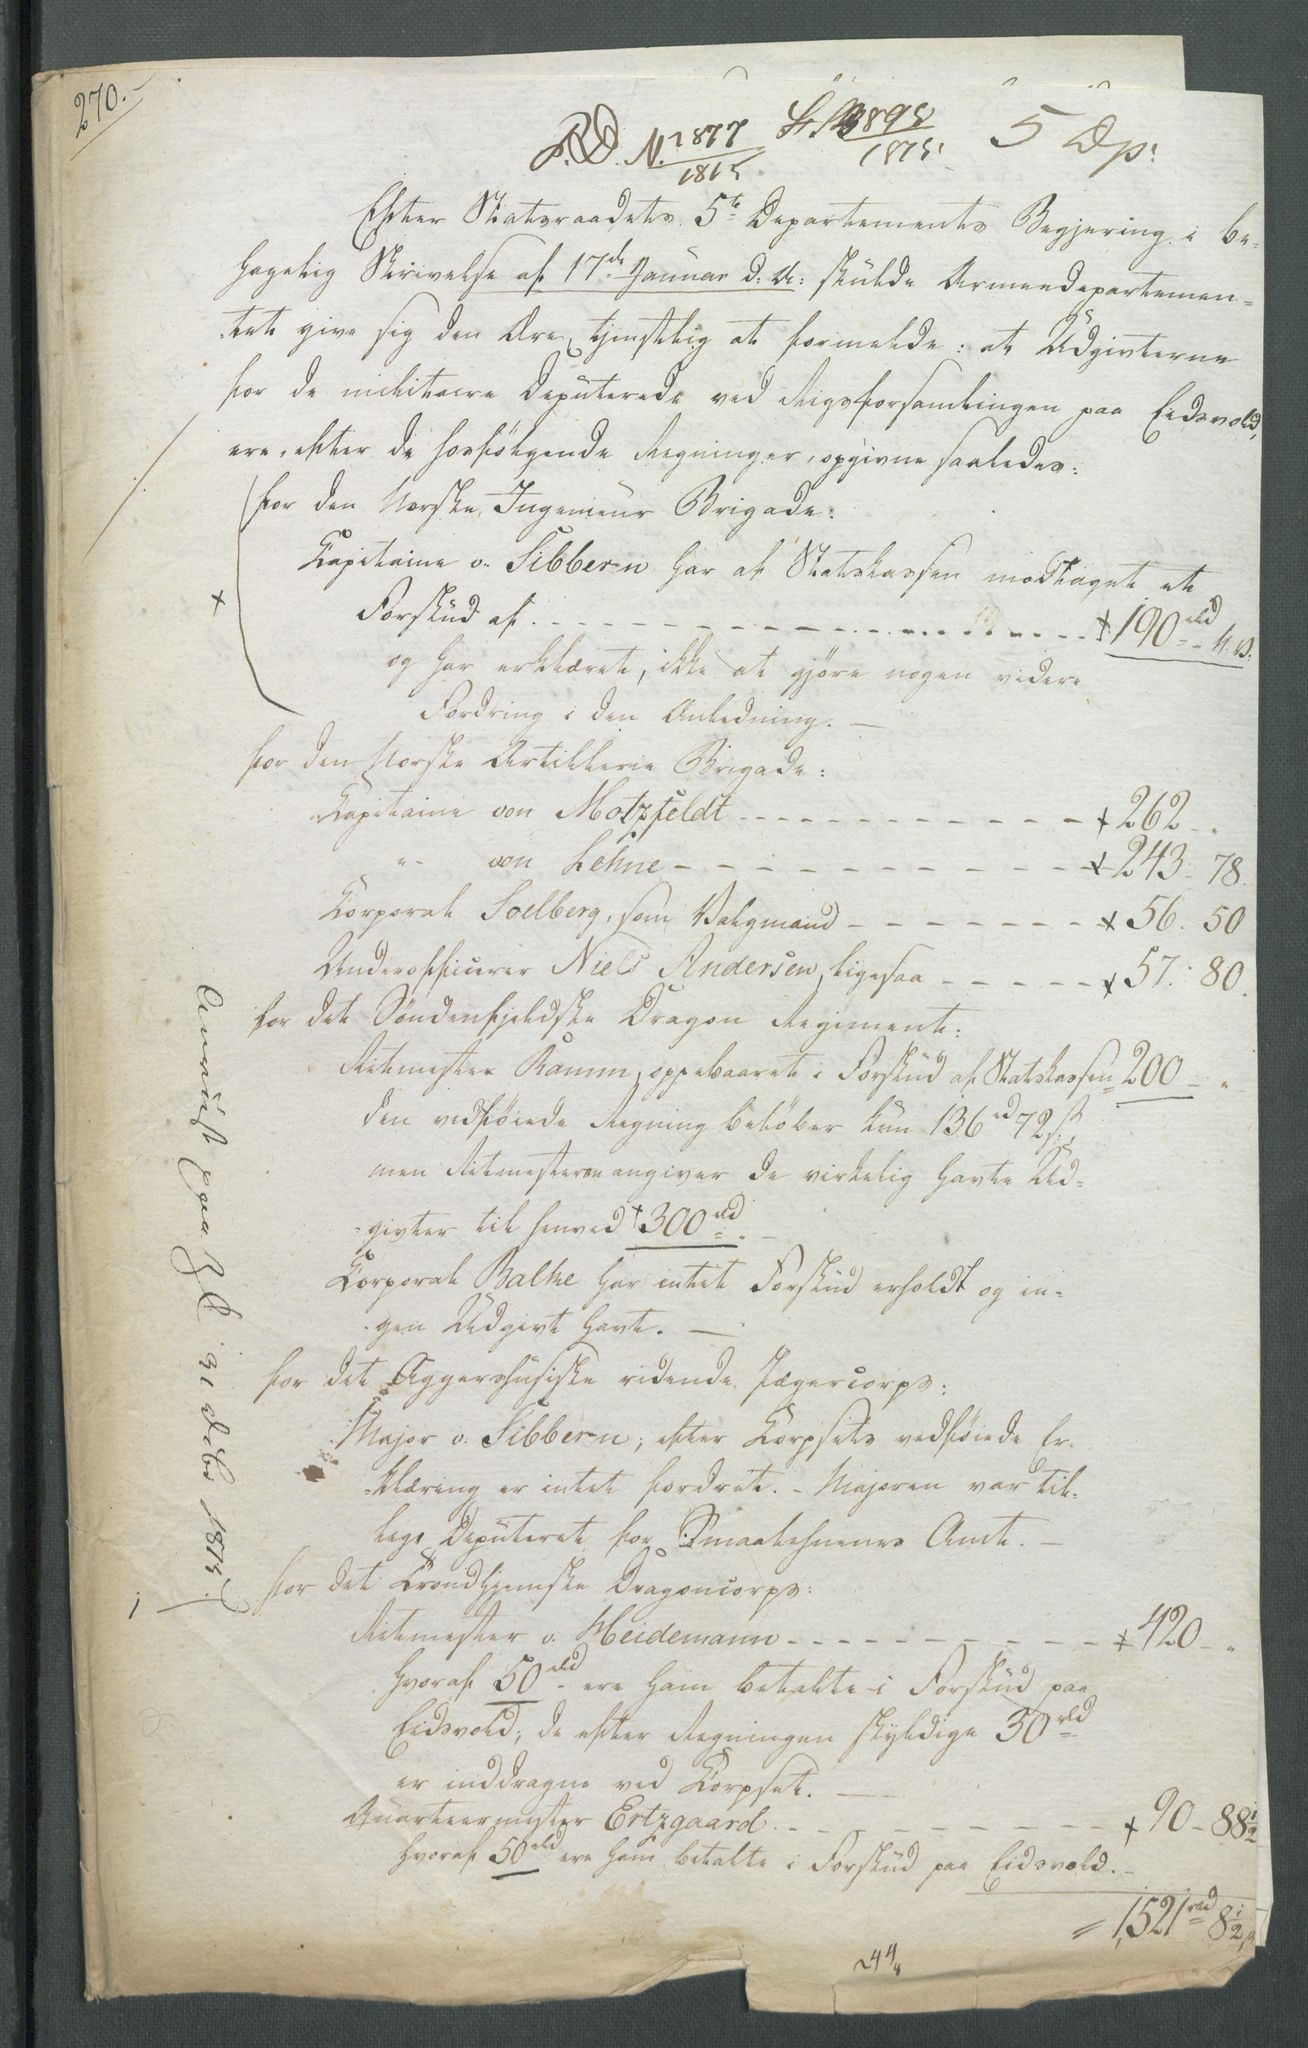 270.
R.D. N. 1877/1815. 895/1815. 5 Dp:
Efter Statsraadets 5te Departements Begjering i be-
hagelig Skrivelse af 17de Januar d: A: skulde Armeedepartemen-
tet give sig den Ære, tjenstlig at formelde: at Udgivterne
for de militaire Deputerede ved Rigsforsamlingen paa Eidsvold,
ere, efter de hosfölgende Regninger, opgivne saaledes:
for den Norske Ingenieur Brigade:
Capitaine v. Sibbern har af Statskassen modtaget et
Forskud af - - - 190 rbd N.V.
og har erklæret, ikke at gjöre nogen videre
Fordring i den Anledning. —
for den Norske Artillerie Brigade:
Capitaine von Motzfeldt - - - 262 - "
"- von Lehne - - - 243 - 78.
Corporal Soelberg, som Valgmand - - - 56. 50
Underofficerer Niels Andersen, ligesaa - - - 57. 80.
for det Söndenfjeldske Dragon Regiment:
Ritmester Ramm, oppebaaret i Forskud af Statskassen 200 - "
den vedföiede Regning belöber kun 136 rd 72 s.,
men Ritmesteren angiver de virkelig havte Ud-
givter til henved 300 rbd. -
Corporal Balke har intet Forskud erholdt og in-
gen Udgivt havt. —
for det Aggershusiske ridende Jægercorps:
Major v. Sibbern; efter Corpsets vedföiede Er-
klæring er intet fordret. - Majoren var til-
lige Deputeret for Smaalehnenes Amt. —
for det Trondhjemske Dragoncorps:
Ritmester v. Heidemann - - - 420 - "
hvoraf 50 rbd ere ham betalte i Forskud paa
Eidsvold; de efter Regningen skyldige 30 rbd
er inddragne ved Corpset. —
Quarteermester Ertzgaard - - - 90 - 88½
hvoraf 50 rbd ere ham betalte i Forskud paa Eidsvold. -
= 1,521 rbd 8½ s
1815.